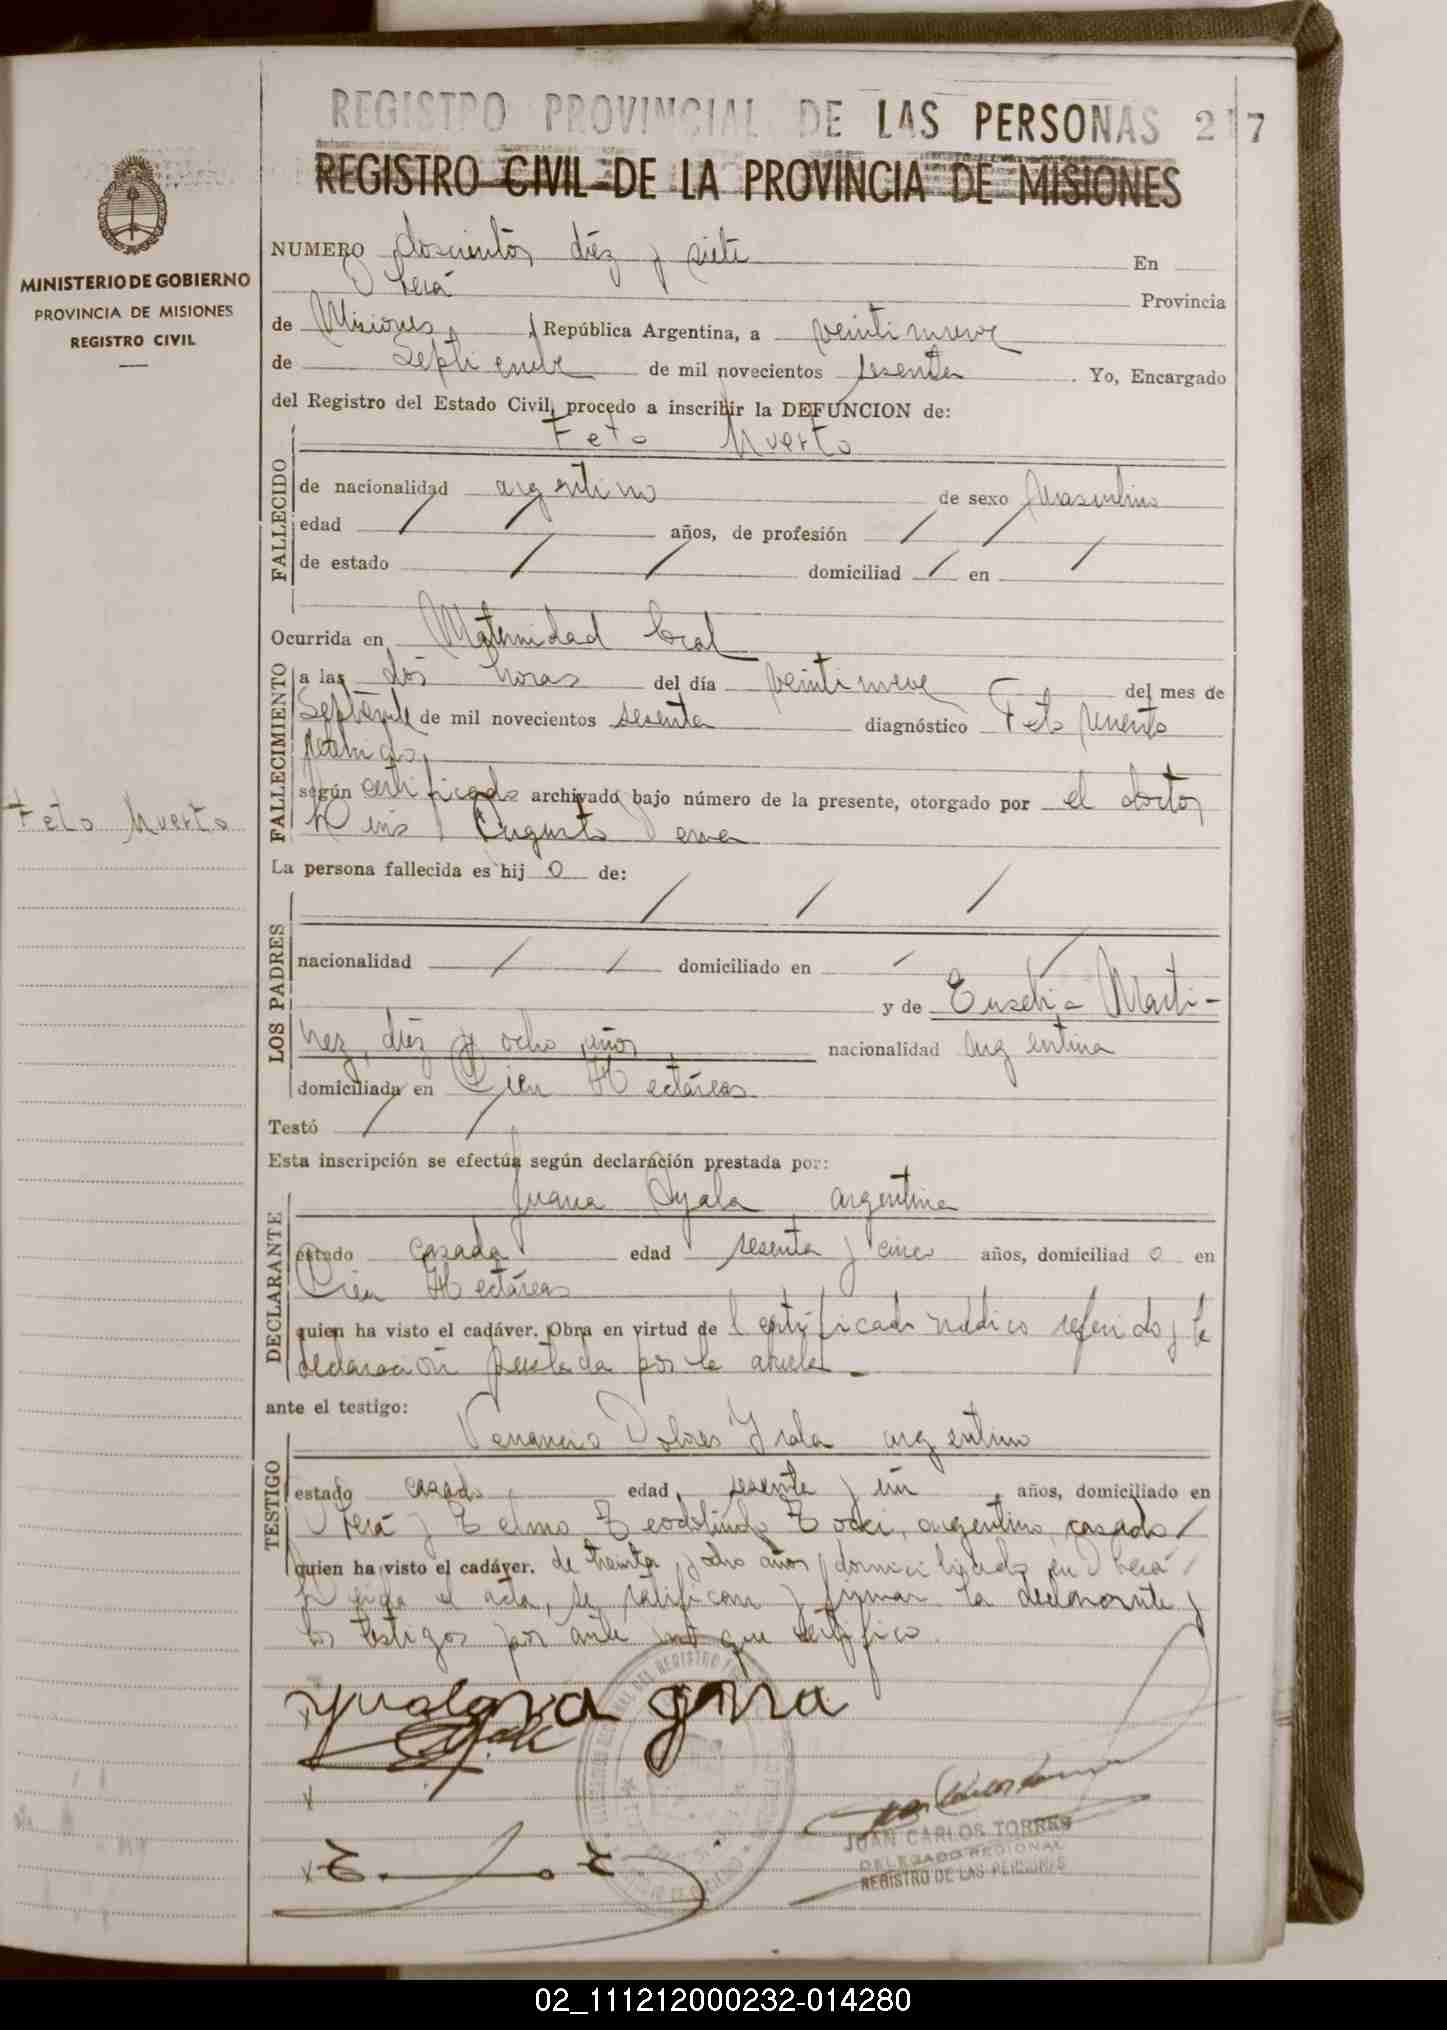 REGISTRO PROVINCIAL DE LAS PERSONAS 217
REGISTRO CIVIL DE LA PROVINCIA DE MISIONES
MINISTERIO DE GOBIERNO
PROVINCIA DE MISIONES
REGISTRO CIVIL
NUMERO doscientos diéz y siete En
Oberá Provincia
de Misiones, República Argentina, a veintinueve
de Septiembre de mil novecientos sesenta . Yo, Encargado
del Registro del Estado Civil, procedo a inscribir la DEFUNCION de:
Feto Muerto
FALLECIDO
de nacionalidad argentino de sexo Masculino
edad / / años, de profesión / /
de estado / / domiciliad / en /
Ocurrida en Maternidad local
FALLECIMIENTO
a las dos horas del día veintinueve del mes de
Septiembre de mil novecientos sesenta diagnóstico Feto muerto
retenido,
según certificado archivado bajo número de la presente, otorgado por el doctor
Luis Augusto
Feto Muerto
La persona fallecida es hij o de:
/ / /
LOS PADRES
nacionalidad / / domiciliado en / /
y de Eusebia Marti-
nez, diéz y ocho años nacionalidad argentina
domiciliada en Cien Hectáreas
Testó / /
Esta inscripción se efectúa según declaración prestada por:
Juana Ayala argentina
DECLARANTE
estado casada edad sesenta y cinco años, domiciliad o en
Cien Hectáreas
quien ha visto el cadáver. Obra en virtud de l certificado médico referido y la
declaración prestada por la abuela.-
ante el testigo:
Venancio Dolores Irala argentino
TESTIGO
estado casado edad, sesenta y un años, domiciliado en
Oberá y Telmo Teodolindo argentino, casado /
quien ha visto el cadáver. de treinta y ocho años, domiciliado en Oberá /
Leída el acta, se ratifican y firman la declarante y
los testigos por ante mí que certifico.
JUAN CARLOS TORRES
DELEGADO REGIONAL
REGISTRO DE LAS PERSONAS
02_111212000232-014280